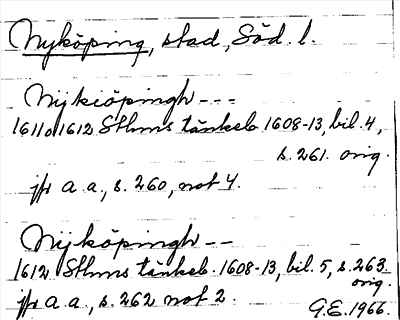 Nyköping, stad, Söd. l.
Nijkiöpingh ---
1611o1612 Sthms tänkeb. 1608-13, bil. 4,
s. 261. orig.
jfr a. a., s. 260, not 4.
Nijköpingh --
1612 Sthms tänkeb. 1608-13, bil. 5, s. 263.
orig.
jfr a. a., s. 262 not 2.
G.E. 1966.